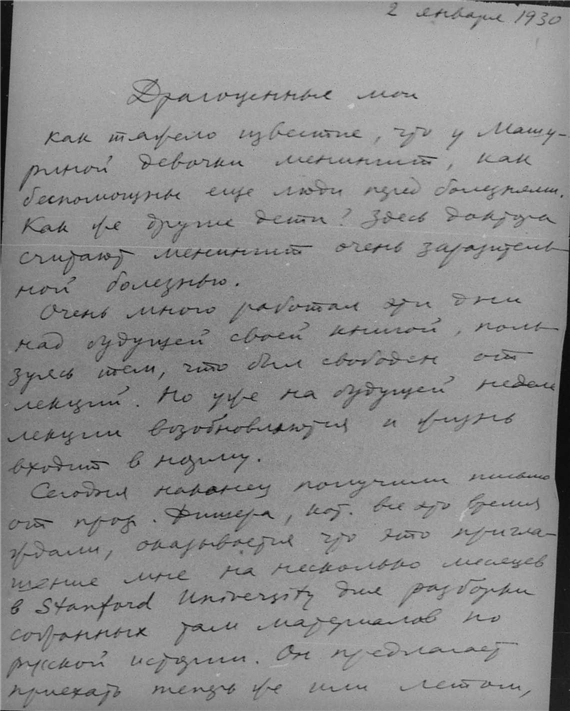 2 января 1930
Драгоценные мои
как тяжело известие, что у Машу-
риной девочки менингит, как
беспомощны еще люди перед болезнями.
Как же другие дети? Здесь доктора
считают менингит очень заразитель-
ной болезнью.
Очень много работал эти дни
над будущей своей книгой, поль-
зуясь тем, что был свободен от
лекций. Но уже на будущей неделе
лекции возобновляются и жизнь
входит в норму.
Сегодня наконец получили письмо
от проф. Фишера, кот. все это время
ждали, оказывается что это пригла-
шение мне на несколько месяцев
в Stanford University для разборки
собранных там материалов по
русской истории. Он предлагает
приехать теперь же или летом,